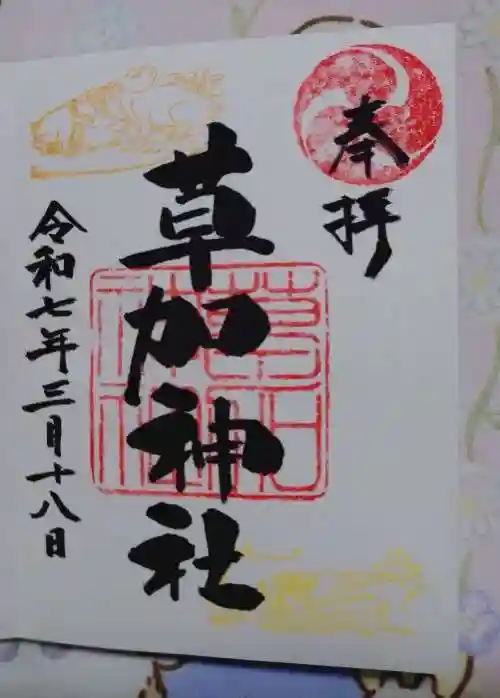 奉拝
草加神社
令和七年三月十八日